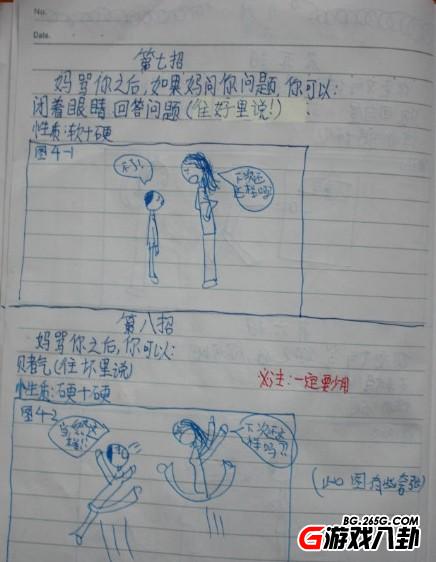 No.
Date.
第七招
妈骂你之后,如果妈问你问题,你可以:
闭着眼睛回答问题(住好里说!)
性质:软+硬
图4-1
不了!
下次还这样吗
第八招
妈骂你之后,你可以:
贝者气(住坏里说)
性质:硬+硬
※注:一定要少用
图4-2
当然还这样!!
下次还这样吗??
图有些夸张)
BG.265G.COM
G游戏八卦